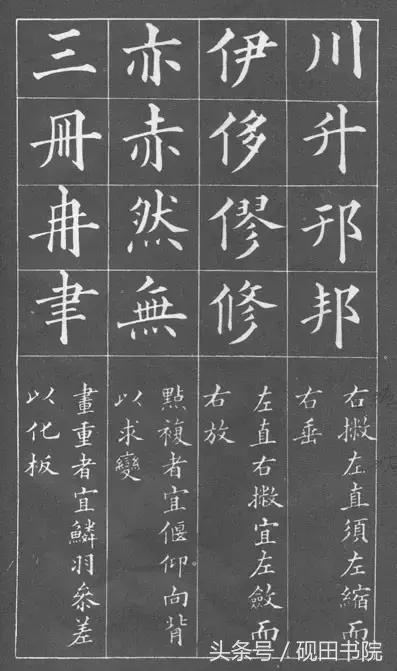 川升邗邦
右撇左直須左縮而
右垂
伊侈僇修
左直右撇宜左斂而
右放
亦赤然無
點複者宜偃仰向背
以求變
三冊冉聿
畫重者宜鱗羽叅差
以化板
头条号／砚田书院